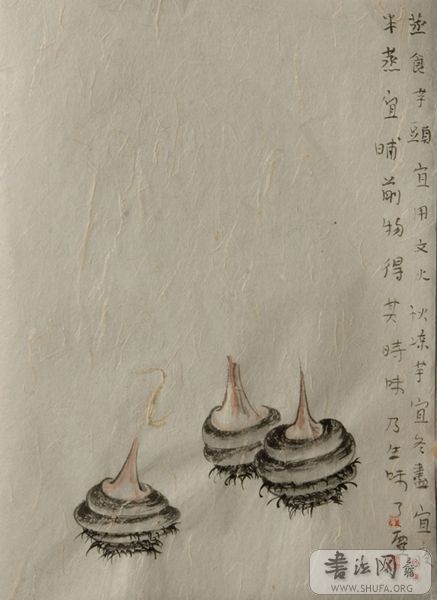 蒸食芋頭宜用文火秋涼芋宜冬盡宜
米蒸宜晡前物得其時味乃全味了
書法网
WWW.SHUFA.ORG